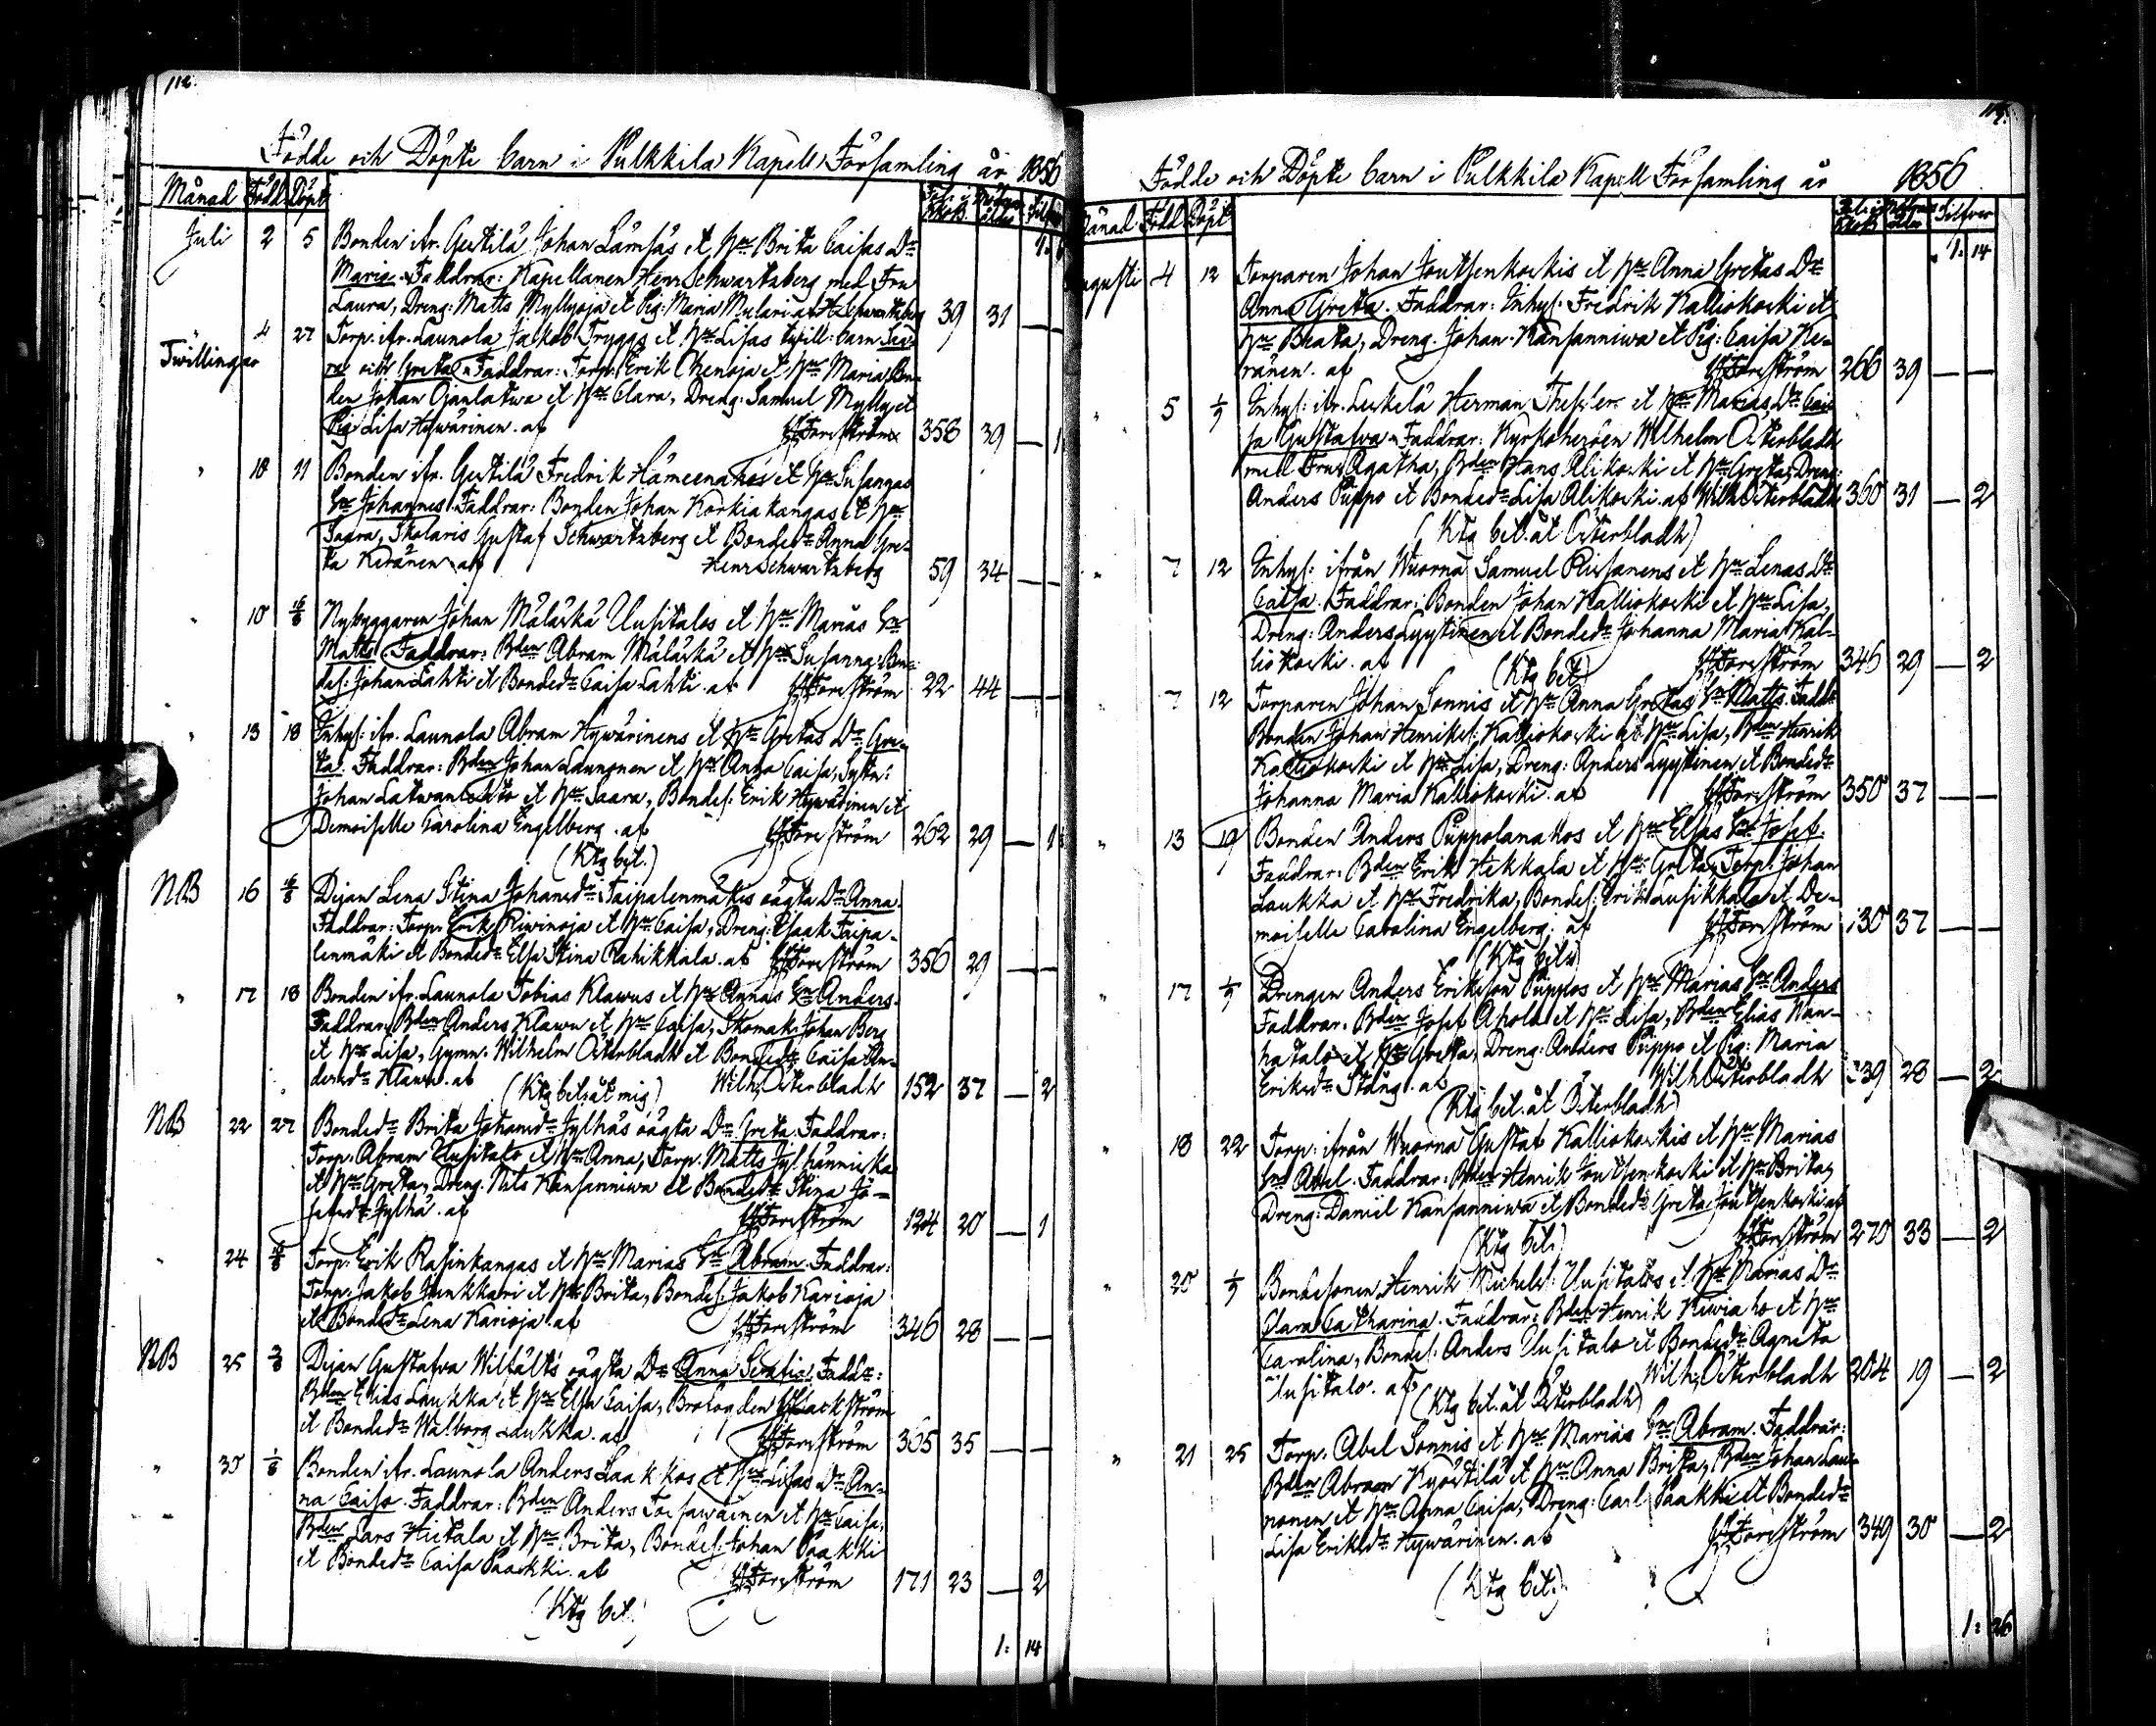 112.
Födde och Döpte barn i Pulkkila Kapells Församling år 1856
Månad Född Döpt
Juli 2 5 Bonden ifr. Gertilä Johan Lämsäs et Hu Brita Caisas Dr
Maria. Faddrar: Kapellanen Henr Schwartzberg med Fru
Laura, Dreng: Matts Myllyoja et Pig: Maria Mulari af H Schwartzberg 39 31 — —
" 4 27 Torp. ifr. Launola Jakob Tryggs et Hu Lisas tvill: barn
Twillingar och Greta. Faddrar: Torp: Erik et Hu Maria
Johan et Hu Clara, Dreng: Samuel Mylly et
Pig: Lisa Hywärinen. af HForsström 358 39 — 1
" 10 11 Bonden ifr. Gertilä Fredrik Hämeenahos et Hu Susannas
Sn Johannes. Faddrar: Bonden Johan Korkiakangas et Hu
Saara, Skolaris Gustaf Schwartzberg et Bondedr Anna Gre-
ta Keränen af Henr Schwartzberg 59 34 — —
" 10 16/8 Nybyggaren Johan Mäläskä Uusitalos et Hu Marias Sn
Matts. Faddrar: Bden Abram Mäläskä et Hu Susanna, Bon-
des: Johan Lahti et Bondedr Caisa Lahti. af HForsström 22 44 — —
" 13 18 Inhys: ifr. Launola Abram Hywärinens et Hu Gretas Dr Gre-
ta. Faddrar: Bden Johan Launonen et Hu Anna Caisa,
Johan et Hu Saara, Bondes: Erik Hywärinen et
Demoiselle Carolina Engelberg. af HForsström 262 29 — 1
(Ktg bet.)
NB 16 16/8 Dejan Lena Stina Johansdr Taipalenmäkis oägta Dr Anna.
Faddrar: Torp: Erik Riwinoja et Hu Caisa, Dreng: Isaak Taipa-
lenmäki et Bondedr Elsa Stina Rahikkala. af HForsström 356 29 — —
" 17 18 Bonden ifr. Launola Tobias Klawus et Hu Annas Sn Anders.
Faddrar: Bden Anders Klawu et Hu Caisa, Skomak: Johan Berg
et Hu Lisa, Gymn: Wilhelm Österbladh et Bondedr Caisa An-
dersdr Klawu. af (Ktg bet. åt mig) Wilh Österbladh 152 37 — 2
NB 22 27 Bondedr Brita Johansdr Jylhäs oägta Dr Greta. Faddrar:
Torp. Abram Uusitalo et Hu Anna, Torp. Matts Jylhänniska
et Hu Greta, Dreng. Nils Kansanniwa et Bondedr Stina Jo-
sefsdr Jylhä. af HForsström 124 20 — 1
" 24 16/8 Torp: Erik Rasinkangas et Hu Marias Sn Abram. Faddrar:
Torp. Jakob Junkkari et Hu Brita, Bondes: Jakob Karioja
et Bondedr Lena Karioja. af HForsström 346 28 — —
NB 25 3/8 Dejan Gustafva Wiltälts oägta Dr Anna Serafia. Faddr:
Bden Elias Laukka et Hu Elsa Caisa,
et Bondedr Walborg Laukka. af HForsström 365 35 — —
" 30 1/8 Bonden ifr. Launola Anders Laakkos et Hu Lisas Dr An-
na Caisa. Faddrar: Bden Anders et Hu Caisa,
Bden Lars Hietala et Hu Brita, Bondes: Johan Paakki
et Bondedr Caisa Paakki. af HForsström 171 23 — 2
(Ktg bet.)
1: 14
Födde och Döpte barn i Pulkkila Kapell Församling år 1856
Månad Född Döpt Silfver
1. 14
Augusti 4 12 Torparen Johan Joutsenkoskis et Hu Anna Gretas Dr
Anna Greta. Faddrar: Inhys: Fredrik Kalliokoski et
Hu Beata, Dreng. Johan Kansanniwa et Pig: Caisa Ke-
ränen. af HForsström 266 39 — —
" 5 1/9 Inhys: ifr. Leskelä Herman Thesslers et Hu Marias Dr Cai-
sa Gustafva. Faddrar: Kyrkoherden Wilhelm Österbladh
med Fru Agatha, Bden Hans Alikoski et Hu Greta, Dreng:
Anders Puppo et Bondedr Lisa Alikoski. af Wilh Österbladh 360 31 — 2
(Ktg bet. åt Österbladh)
" 7 12 Inhys: ifrån Wuorna Samuel Pissanens et Hu Lenas Dr
Caisa. Faddrar: Bonden Johan Kalliokoski et Hu Lisa,
Dreng: Anders Lyytinen et Bondedr Johanna Maria Kal-
liokoski. af (Ktg bet) HForsström 346 29 — 2
" 7 12 Torparen Johan Sonnis et Hu Anna Gretas Sn Matts. Faddr:
Bonden Johan Henriks: Kalliokoski et Hu Lisa, Bden Henrik
Kalliokoski et Hu Lisa, Dreng: Anders Lyytinen et Bondedr
Johanna Maria Kalliokoski. af HForsström 350 37 — —
" 13 19 Bonden Anders Puppolanahos et Hu Elsas Sn Josef.
Faddrar: Bden Erik Hekkala et Hu Greta, Torp: Johan
Laukka et Hu Fredrika, Bondes: Erik et De-
moiselle Carolina Engelberg. af HForsström 130 37 — —
(Ktg bet.)
" 17 1/9 Drengen Anders Eriksson Puppos et Hu Marias Sn Anders
Faddrar: Bden Josef Ahola et Hu Lisa, Bden Elias Wan-
hatalo et Hu Greta, Dreng: Anders Puppo et Pig: Maria
Eriksdr Stång. af Wilh Österbladh 339 28 — 2
(Ktg bet. åt Österbladh)
" 18 22 Torp: ifrån Wuorna Gustaf Kalliokoskis et Hu Marias
Sn Abel. Faddrar: Bden Henrik Joutsenkoski et Hu Brita,
Dreng: Daniel Kansanniwa et Bondedr Greta Joutsenkoski af
(Ktg bet.) HForsström 270 33 — 2
" 20 1/9 Bondesonen Henrik Michels: Uusitalos et Hu Marias Dr
Clara Catharina. Faddrar: Bden Henrik Kiwiaho et Hu
Carolina, Bondes: Anders Uusitalo et Bondedr Agneta
Uusitalo. af Wilh Österbladh 204 19 — 2
(Ktg bet. åt Österbladh)
" 21 25 Torp. Abel Sonnis et Hu Marias Sn Abram. Faddrar:
Bden Abram Kyöstilä et Hu Anna Brita, Bden Johan Lau-
nonen et Hu Anna Caisa, Dreng: Carl Paakki et Bondedr
Lisa Eriksdr Hywärinen. af HForsström 349 30 — 2
(Ktg bet.)
1: 26